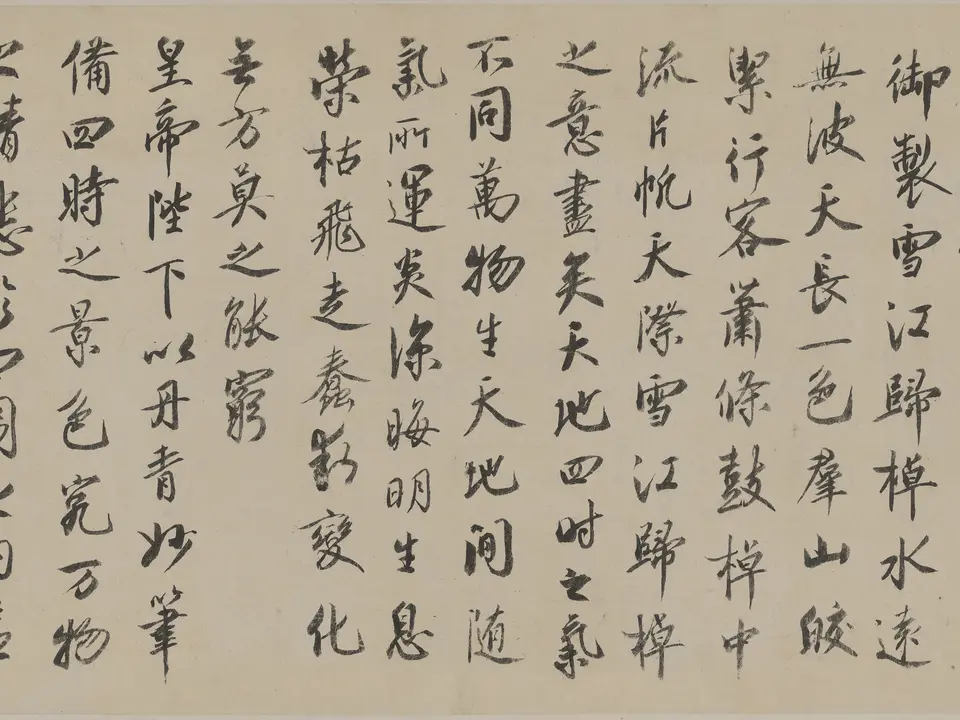 御製雪江歸棹水遠
無波天長一色羣山皎
潔行客蕭條鼓棹中
流片帆天際雪江歸棹
之意盡矣天地四时之氣
不同萬物生天地間随
氣所運炎涼晦明生息
榮枯飛走蠢動變化
無方莫之能窮
皇帝陛下以丹青妙筆
備四時之景色究万物